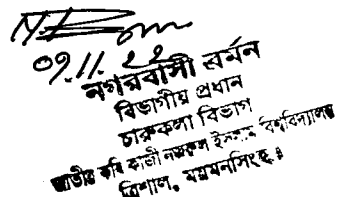 ০৭.11.২২
নগরবাসী বর্মন
বিভাগীয় প্রধান
চারুকলা বিভাগ
জাতীয় কবি কাজী নজরুল ইসলাম বিশ্ববিদ্যালয়
ত্রিশাল, ময়মনসিংহ।